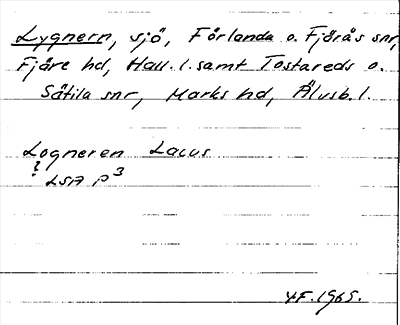 Lygnern, sjö, Förlanda o. Fjärås snr,
Fjäre hd, Hall. l. samt Tostareds o.
Sätila snr, Marks hd, Älvsb. l.
Logneren Lacus
?
LSA P3
YF. 1965.